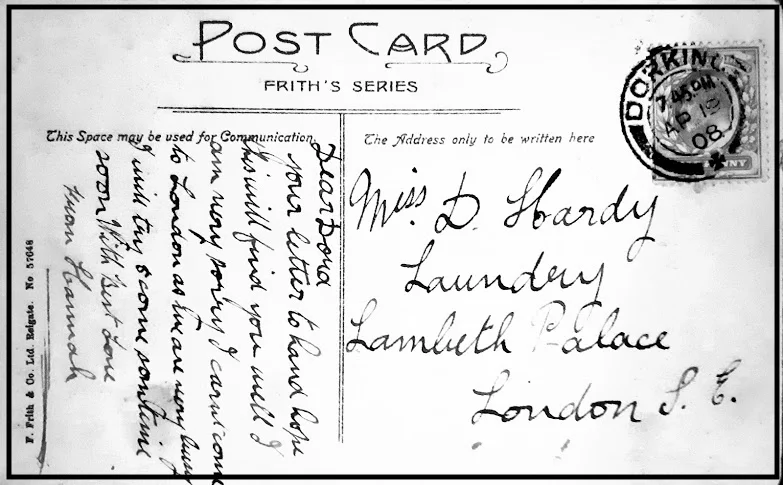 POST CARD
FRITH'S SERIES
This Space may be used for Communication.
The Address only to be written here
DORKING
7.45 PM
AP
08
NNY
Dear Dora
your letter to hand hope
this will find you well I
am very sorry I carnt come
to London as we are very busy
I will try & come sometime
soon With Best Love
from Hannah
Miss. D. Hardy
Laundry
Lambeth Palace
London S. E.
F. Frith & Co. Ltd. Reigate. No 57048